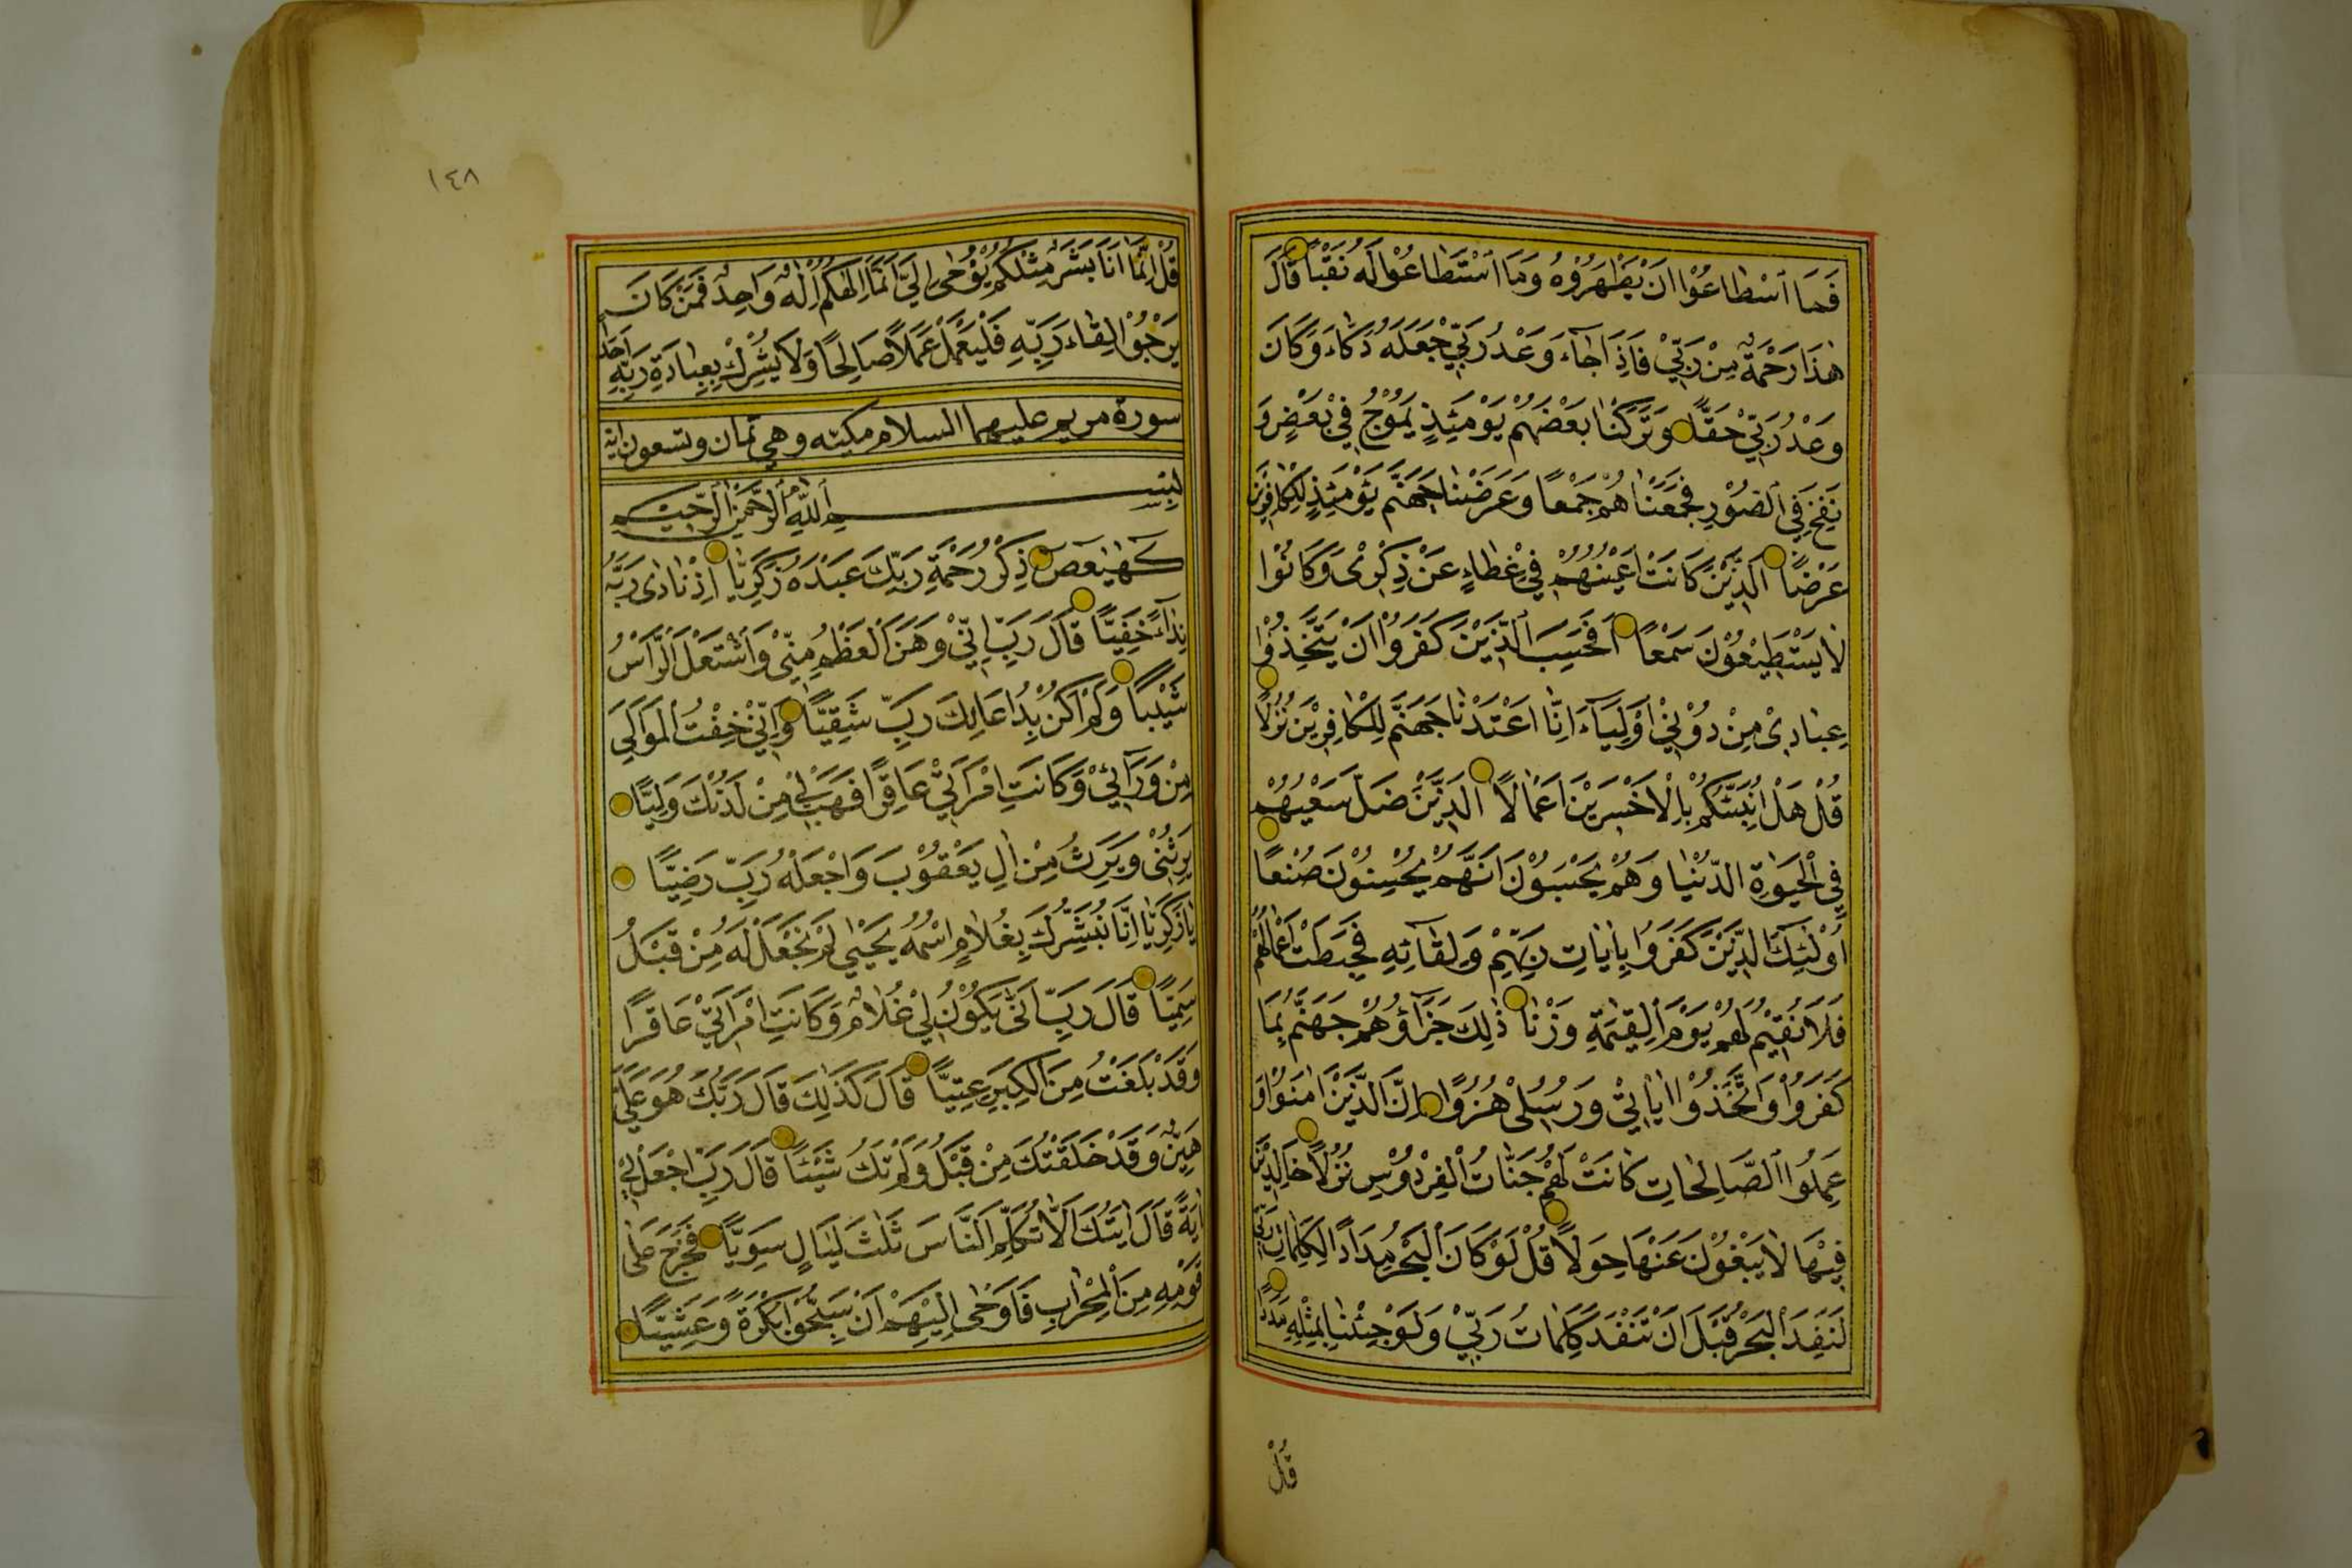 فَمَا اسْطَاعُوْا اَنْ يَظْهَرُوْهُ وَمَا اسْتَطَاعُوْا لَهُ نَقْبًا قَالَ
هٰذَا رَحْمَةٌ مِنْ رَبِّيْ فَاِذَا جَآءَ وَعْدُ رَبِّيْ جَعَلَهُ دَكَّاءَ وَكَانَ
وَعْدُ رَبِّيْ حَقًّا وَتَرَكْنَا بَعْضَهُمْ يَوْمَئِذٍ يَمُوْجُ فِيْ بَعْضٍ وَ
نُفِخَ فِي الصُّوْرِ فَجَمَعْنَاهُمْ جَمْعًا وَعَرَضْنَا جَهَنَّمَ يَوْمَئِذٍ لِلْكَافِرِيْنَ
عَرْضًا الَّذِيْنَ كَانَتْ اَعْيُنُهُمْ فِيْ غِطَاءٍ عَنْ ذِكْرِيْ وَكَانُوْا
لَا يَسْتَطِيْعُوْنَ سَمْعًا اَفَحَسِبَ الَّذِيْنَ كَفَرُوْا اَنْ يَتَّخِذُوْا
عِبَادِيْ مِنْ دُوْنِيْ اَوْلِيَآءَ اِنَّا اَعْتَدْنَا جَهَنَّمَ لِلْكَافِرِيْنَ نُزُلًا
قُلْ هَلْ نُنَبِّئُكُمْ بِالْاَخْسَرِيْنَ اَعْمَالًا الَّذِيْنَ ضَلَّ سَعْيُهُمْ
فِي الْحَيٰوةِ الدُّنْيَا وَهُمْ يَحْسَبُوْنَ اَنَّهُمْ يُحْسِنُوْنَ صُنْعًا
اُوْلٰئِكَ الَّذِيْنَ كَفَرُوْا بِاٰيَاتِ رَبِّهِمْ وَلِقَآئِهِ فَحَبِطَتْ اَعْمَالُهُمْ
فَلَا نُقِيْمُ لَهُمْ يَوْمَ الْقِيٰمَةِ وَزْنًا ذٰلِكَ جَزَآؤُهُمْ جَهَنَّمُ بِمَا
كَفَرُوْا وَاتَّخَذُوْا اٰيَاتِيْ وَرُسُلِيْ هُزُوًا اِنَّ الَّذِيْنَ اٰمَنُوْا وَ
عَمِلُوا الصَّالِحَاتِ كَانَتْ لَهُمْ جَنَّاتُ الْفِرْدَوْسِ نُزُلًا خَالِدِيْنَ
فِيْهَا لَا يَبْغُوْنَ عَنْهَا حِوَلًا قُلْ لَوْ كَانَ الْبَحْرُ مِدَادًا لِكَلِمَاتِ رَبِّيْ
لَنَفِدَ الْبَحْرُ قَبْلَ اَنْ تَنْفَدَ كَلِمَاتُ رَبِّيْ وَلَوْ جِئْنَا بِمِثْلِهِ مَدَدًا
قُلْ
١٤٨
قُلْ اِنَّمَا اَنَا بَشَرٌ مِثْلُكُمْ يُوْحٰى اِلَيَّ اَنَّمَا اِلٰهُكُمْ اِلٰهٌ وَاحِدٌ فَمَنْ كَانَ
يَرْجُوْا لِقَاءَ رَبِّهِ فَلْيَعْمَلْ عَمَلًا صَالِحًا وَلَا يُشْرِكْ بِعِبَادَةِ رَبِّهِ اَحَدًا
سورة مريم عليهما السلام مكيّه وهي ثمان وتسعون اية
بِسْمِ اللّٰهِ الرَّحْمٰنِ الرَّحِيْمِ
كٓهٰيٰعٓصٓ ذِكْرُ رَحْمَةِ رَبِّكَ عَبْدَهُ زَكَرِيَّا اِذْ نَادٰى رَبَّهُ
نِدَآءً خَفِيًّا قَالَ رَبِّ اِنِّيْ وَهَنَ الْعَظْمُ مِنِّيْ وَاشْتَعَلَ الرَّاْسُ
شَيْبًا وَلَمْ اَكُنْ بِدُعَائِكَ رَبِّ شَقِيًّا وَاِنِّيْ خِفْتُ الْمَوَالِيَ
مِنْ وَرَآئِيْ وَكَانَتِ امْرَاَتِيْ عَاقِرًا فَهَبْ لِيْ مِنْ لَدُنْكَ وَلِيًّا
يَرِثُنِيْ وَيَرِثُ مِنْ اٰلِ يَعْقُوْبَ وَاجْعَلْهُ رَبِّ رَضِيًّا
يَا زَكَرِيَّا اِنَّا نُبَشِّرُكَ بِغُلَامٍ اسْمُهُ يَحْيٰي لَمْ نَجْعَلْ لَهُ مِنْ قَبْلُ
سَمِيًّا قَالَ رَبِّ اَنّٰى يَكُوْنُ لِيْ غُلَامٌ وَكَانَتِ امْرَاَتِيْ عَاقِرًا
وَقَدْ بَلَغْتُ مِنَ الْكِبَرِ عِتِيًّا قَالَ كَذٰلِكَ قَالَ رَبُّكَ هُوَ عَلَيَّ
هَيِّنٌ وَقَدْ خَلَقْتُكَ مِنْ قَبْلُ وَلَمْ تَكُ شَيْئًا قَالَ رَبِّ اجْعَلْ لِيْ
اٰيَةً قَالَ اٰيَتُكَ اَلَّا تُكَلِّمَ النَّاسَ ثَلٰثَ لَيَالٍ سَوِيًّا فَخَرَجَ عَلٰى
قَوْمِهِ مِنَ الْمِحْرَابِ فَاَوْحٰى اِلَيْهِمْ اَنْ سَبِّحُوْا بُكْرَةً وَعَشِيًّا